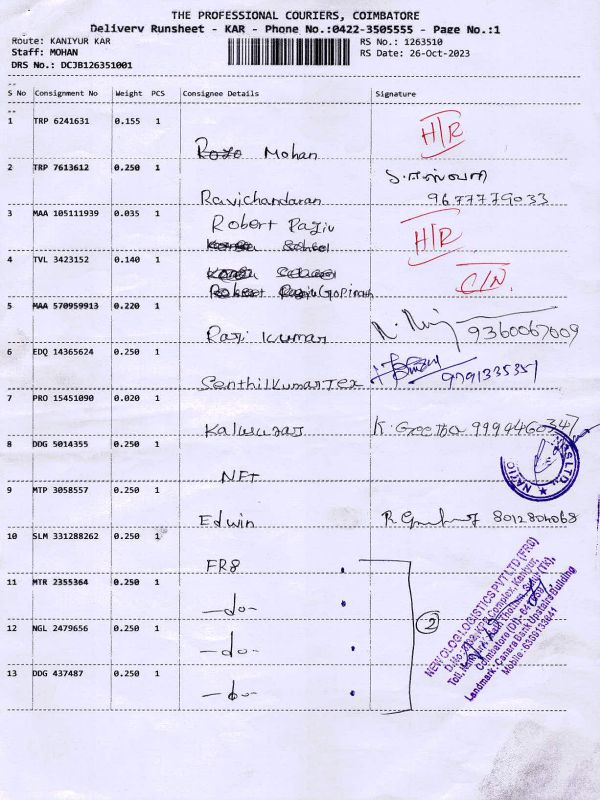 THE PROFESSIONAL COURIERS, COIMBATORE
Delivery Runsheet - KAR - Phone No.:0422-3505555 - Page No.:1
Route: KANIYUR KAR
RS No.: 1263510
Staff: MOHAN
RS Date: 26-Oct-2023
DRS No.: DCJB126351001
S No Consignment No Weight PCS Consignee Details Signature
1 TRP 6241631 0.155 1 Mohan H/R
2 TRP 7613612 0.250 1 Ravichandaran 9677779033
3 MAA 105111939 0.035 1 Robert Rajiv H/R
4 TVL 3423152 0.140 1 Gopinath C/N.
5 MAA 570959913 0.220 1 Raji Kumar 9360067009
6 EDQ 14365624 0.250 1 SenthilKumar Tex 9791335351
7 PRO 15451090 0.020 1 K. Geetha 9994460347
8 DDG 5014355 0.250 1 NFT
9 MTP 3058557 0.250 1 Edwin 8012804068
10 SLM 331288262 0.250 1 FR8
11 MTR 2355364 0.250 1 -do-
12 NGL 2479656 0.250 1 -do-
13 DDG 437487 0.250 1 -do-
2
NEW OLOG LOGISTICS PVT LTD (FR8)
Coimbatore (Dt)
Landmark: Canera Bank Upstairs Building
Mobile: 6369133841